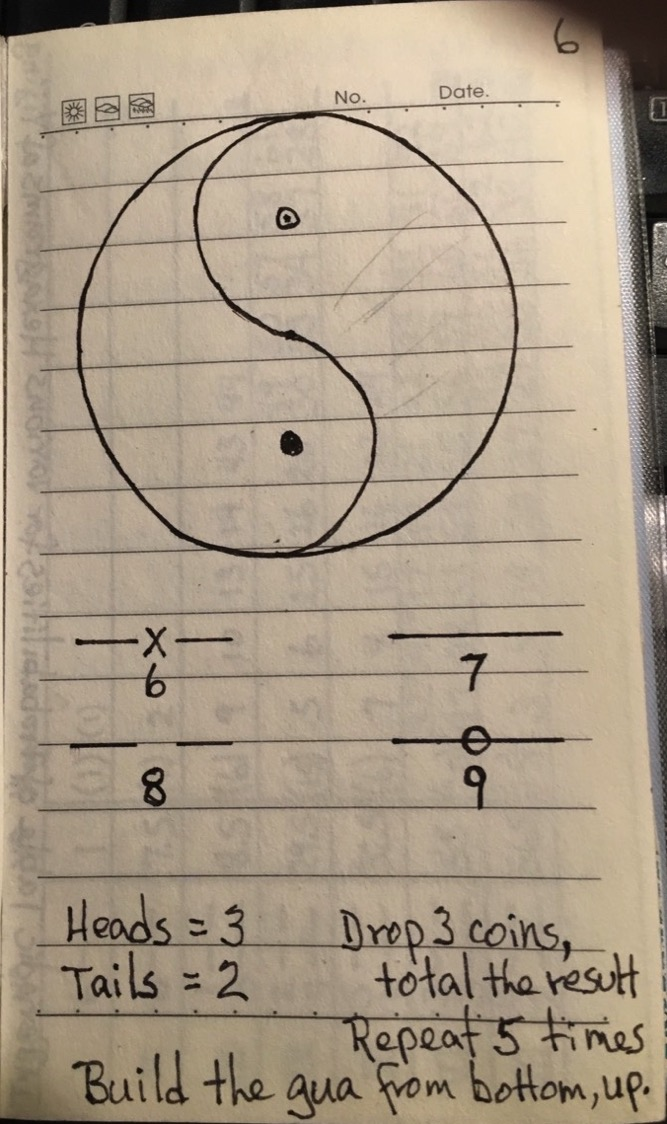 6
No. Date.
X
6 7
8 9
Heads = 3 Drop 3 coins,
Tails = 2 total the result
Repeat 5 times
Build the gua from bottom, up.